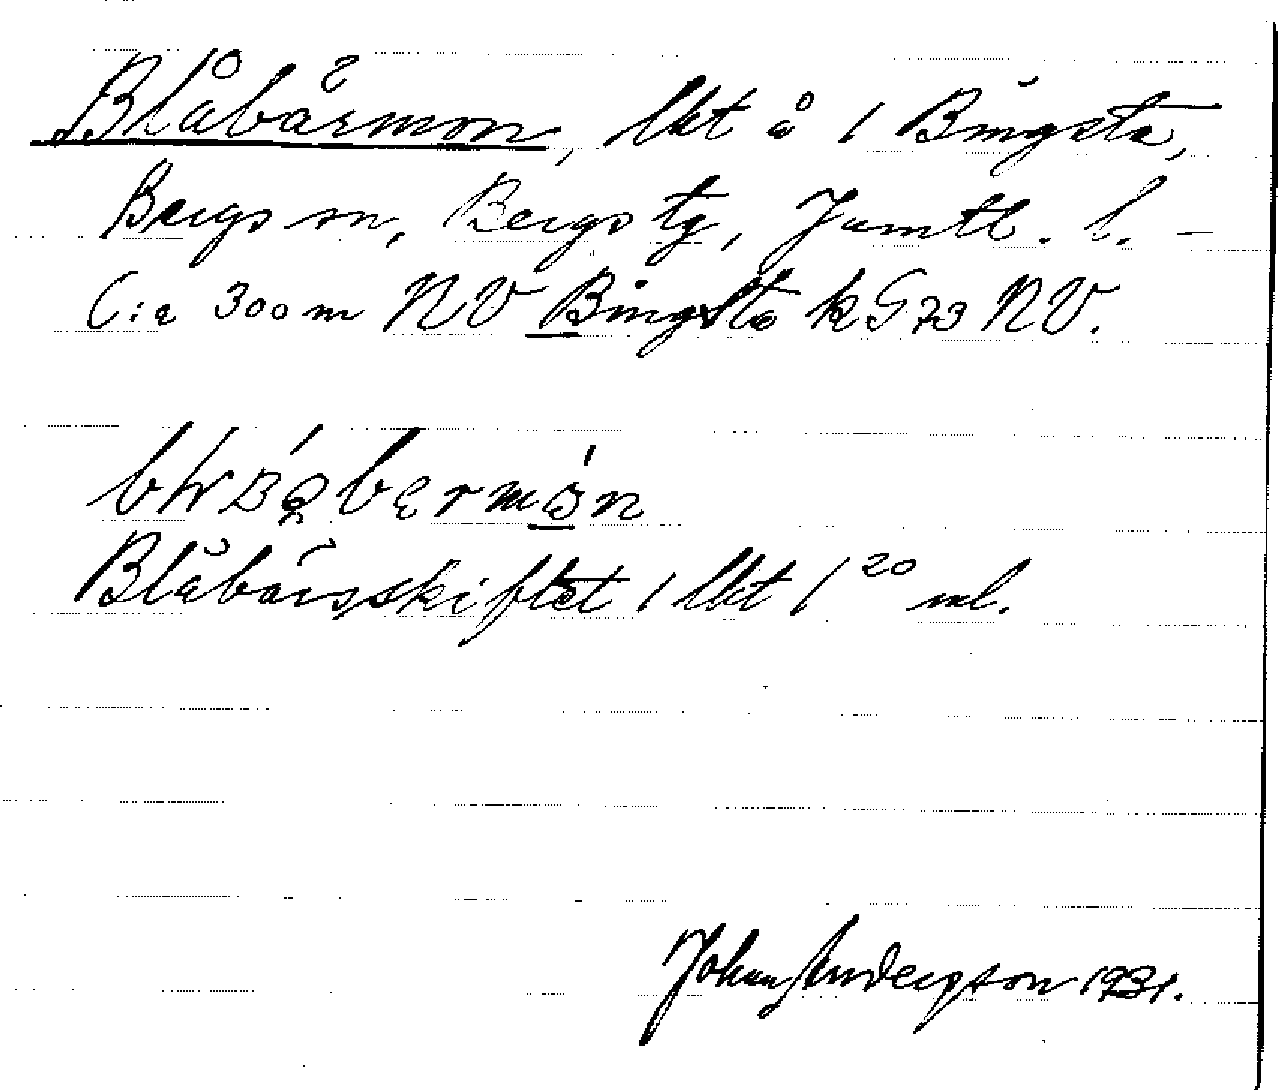 Blåbärmon, lkt å 1 Bingsta,
Bergs sn, Bergs tg, Jämtl. l. –
C:a 300 m NV Bingsta k G 73 NV.
Blåbärsskiftet 1 lkt 1 20 ml.
Johan Andersson 1931.